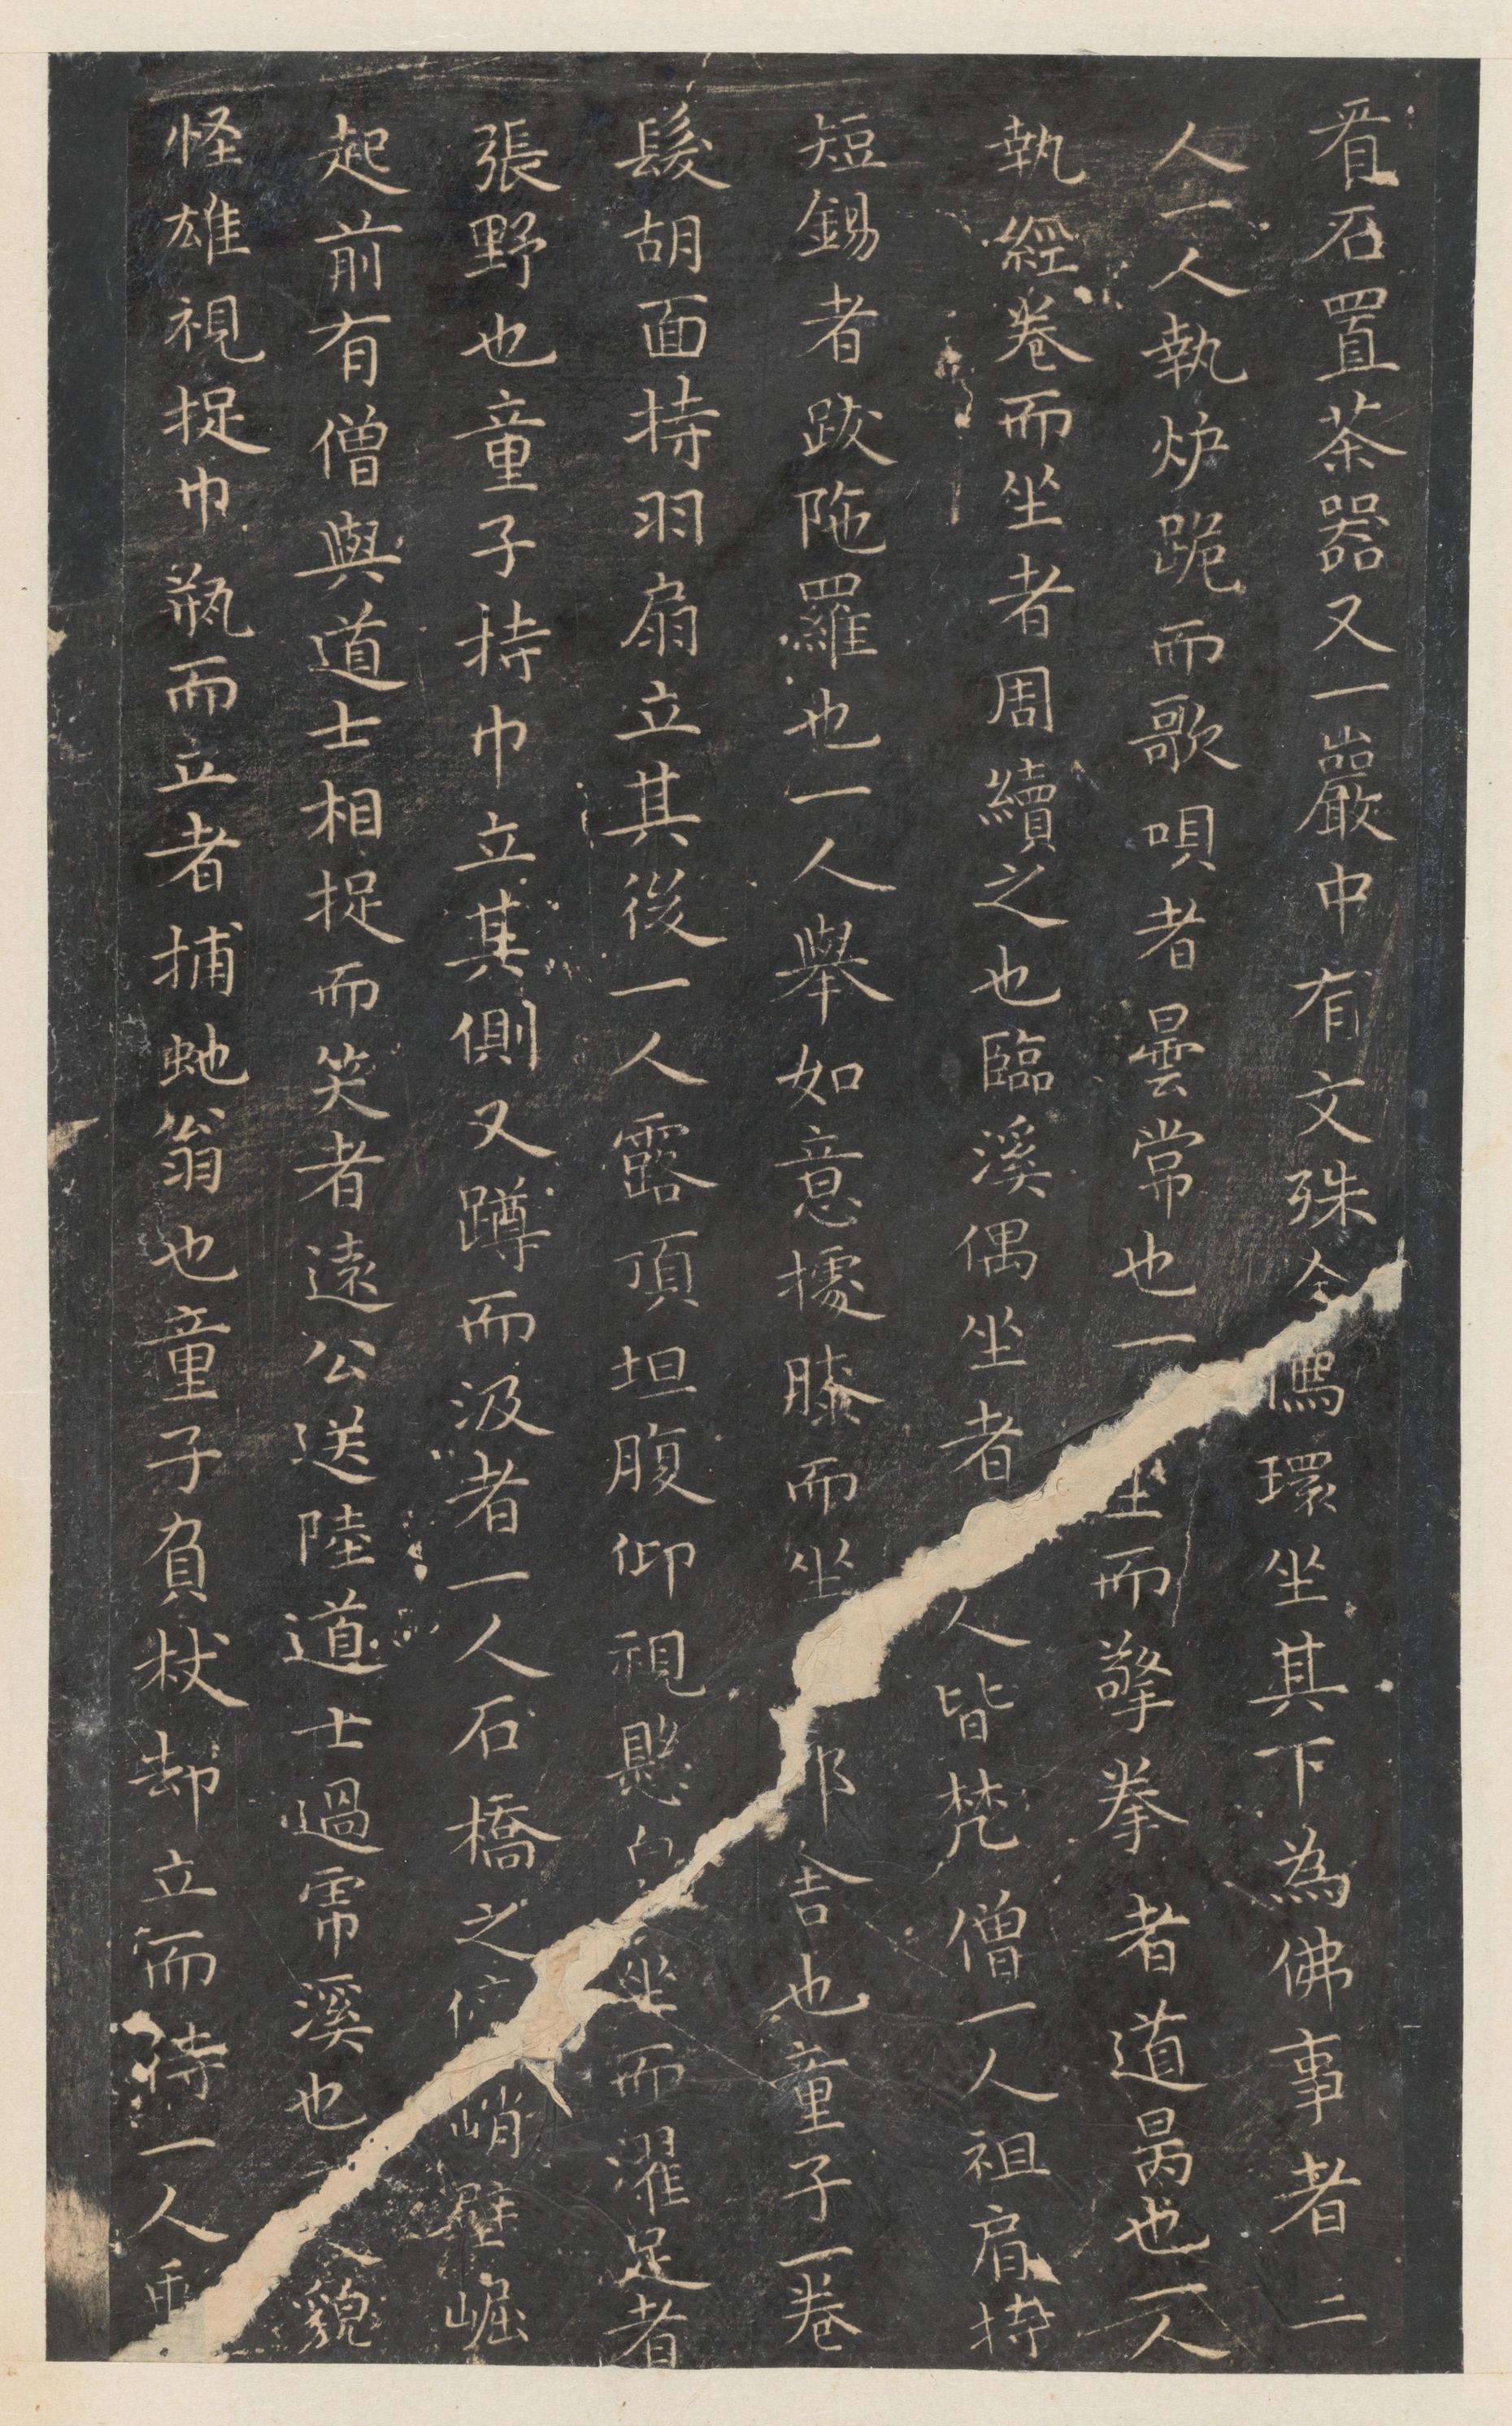 脊石置茶器又一巖中有文殊金馬環坐其下為佛事者三
人一人執炉跪而歌唄者曇常也一坐而擎拳者道昺也一人
執經卷而坐者周續之也臨溪偶坐者人皆梵僧一人袒肩持
短錫者跋陁羅也一人舉如意據膝而坐耶舍也童子一卷
髮胡面持羽扇立其後一人露頂坦腹仰視懸坐而濯足者
張野也童子持巾立其側又蹲而汲者一人石橋之峭壁崛
起前有僧與道士相捉而笑者遠公送陸道士過帍溪也貌
怪雄視捉巾瓶而立者捕虵翁也童子負杖却立而待一人